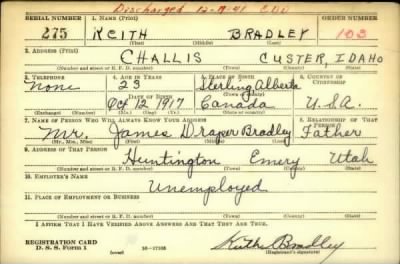 Discharged 12-9-41 EDD
SERIAL NUMBER 1. NAME (Print) ORDER NUMBER
275 KEITH BRADLEY 103
(First) (Middle) (Last)
2. ADDRESS (Print)
CHALLIS CUSTER, IDAHO
(Number and street or R. F. D. number) (Town) (County) (State)
3. TELEPHONE 4. AGE IN YEARS 5. PLACE OF BIRTH 6. COUNTRY OF CITIZENSHIP
None 23 Sterling Alberta
DATE OF BIRTH
Oct 12 1917 Canada U.S.A.
(Mo.) (Day) (Yr.) (State or country)
7. NAME OF PERSON WHO WILL ALWAYS KNOW YOUR ADDRESS 8. RELATIONSHIP OF THAT PERSON
Mr. James Draper Bradley Father
(Mr., Mrs., Miss) (First) (Middle) (Last)
9. ADDRESS OF THAT PERSON
Huntington Emery Utah
(Number and street or R. F. D. number) (Town) (County) (State)
10. EMPLOYER'S NAME
Unemployed
11. PLACE OF EMPLOYMENT OR BUSINESS
(Number and street or R. F. D. number) (Town) (County) (State)
I AFFIRM THAT I HAVE VERIFIED ABOVE ANSWERS AND THAT THEY ARE TRUE.
REGISTRATION CARD
D. S. S. Form 1 (over) 16-17105 Keith Bradley
(Registrant's signature)